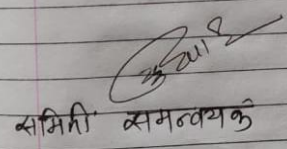 समिती समन्वयक